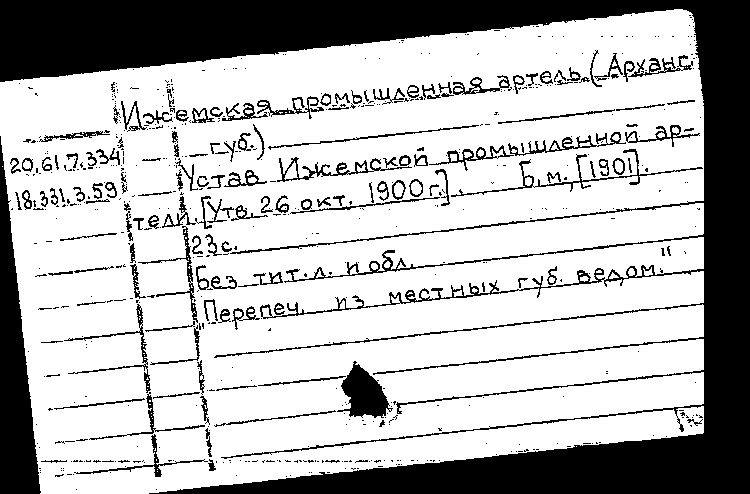 Ижемская промышленная артель (Арханг.
губ.)
20.61.7.334
18.331.3.59
Устав Ижемской промышленной ар-
тели. [Утв. 26 окт. 1900 г.]. Б.м., [1901].
23 с.
Без тит. л. и обл.
"Перепеч. из местных губ. ведом."